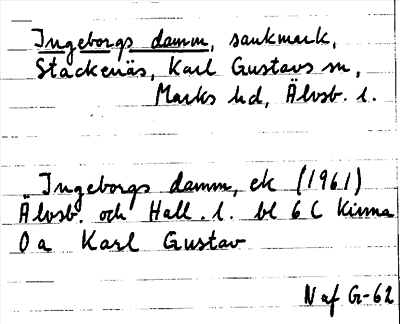 Ingeborgs damm, sankmark,
Stackenäs, Karl Gustavs sn,
Marks hd, Älvsb. l.
Ingeborgs damm, ek (1961)
Älvsb. och Hall. l. bl 6 C Kinna
0 a Karl Gustav
N af G-62